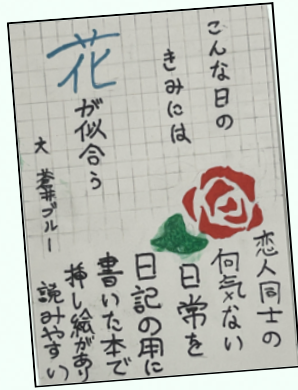 こんな日の
きみには
花
が似合う
大 蒼井ブルー
恋人同士の
何気ない
日常を
日記の用に
書いた本で
挿し絵があり
読みやすい